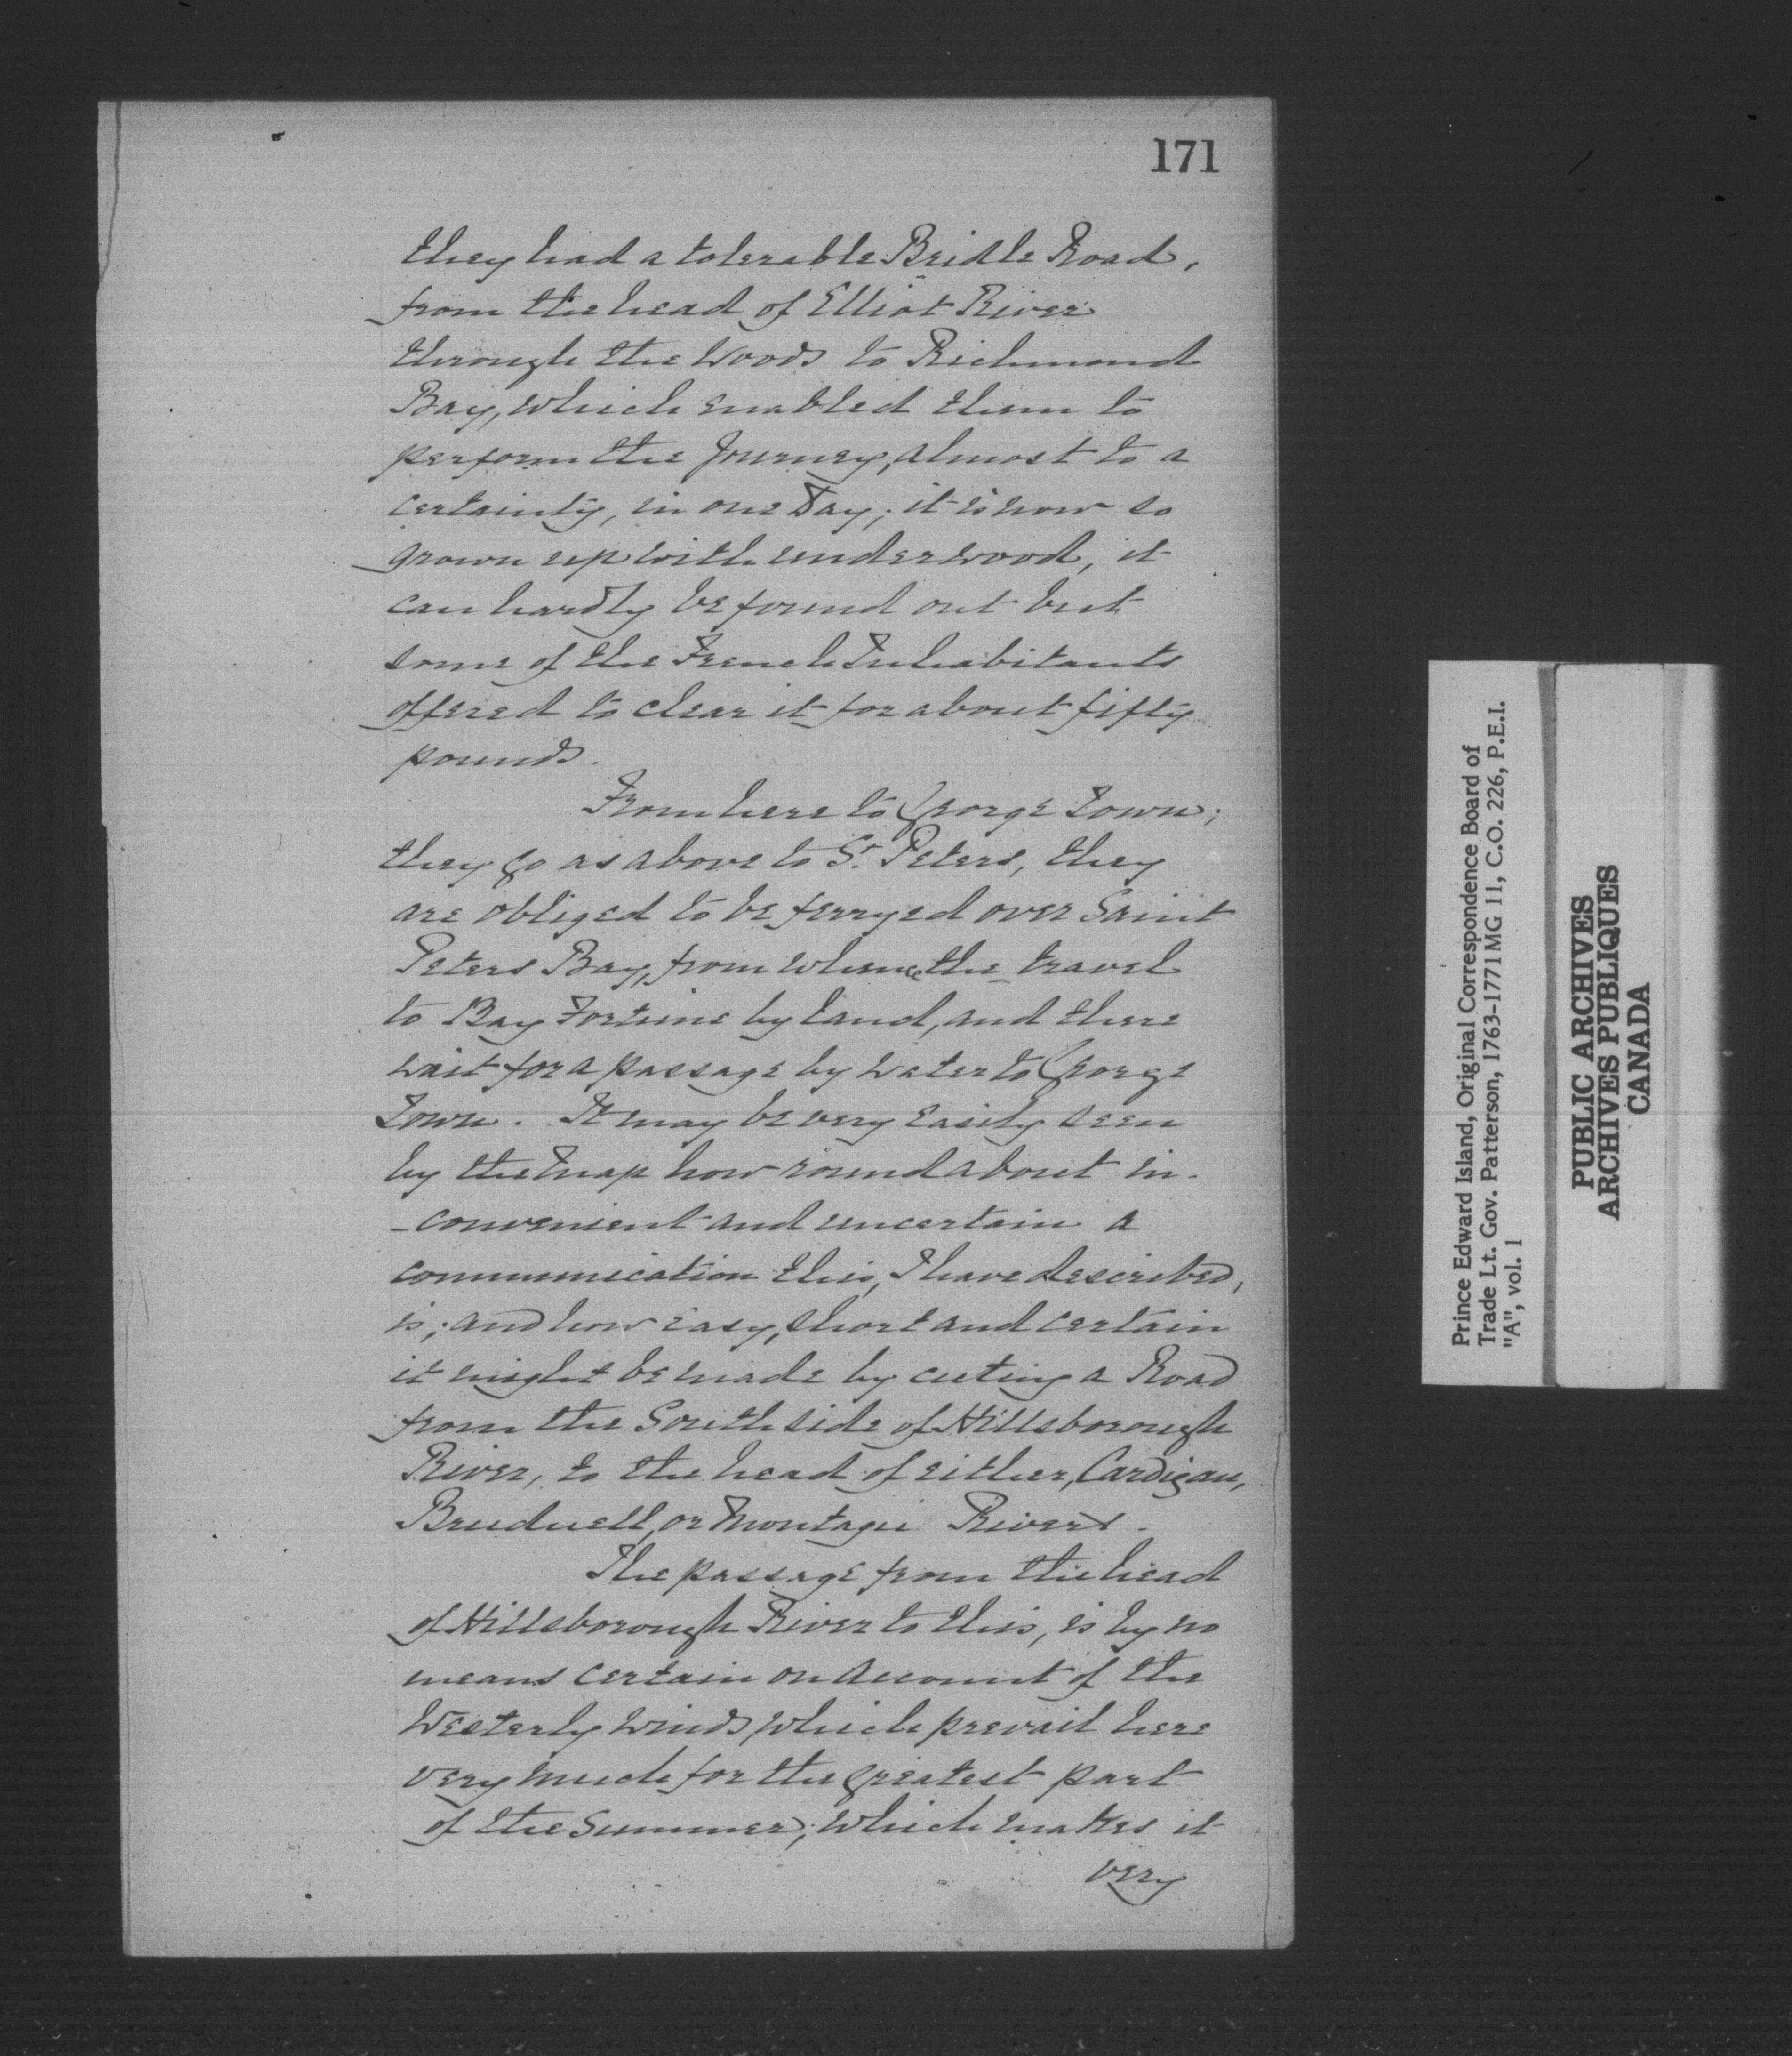 171
they had a tolerable Bridle Road,
from the head of Elliot River
through the Woods to Richmond
Bay, which enabled them to
perform the Journey, almost to a
certainty, in one Day; it is now so
grown up with underwood, it
can hardly be found out but
some of the French Inhabitants
offered to clear it for about fifty
pounds.
From here to George Town;
they go as above to St. Peters, they
are obliged to be ferryed over Saint
Peters Bay, from whence the travel
to Bay Fortune by Land, and there
wait for a passage by water to George
Town. It may be very easily seen
by the Map how roundabout in-
-convenient and uncertain a
communication this, I have described,
is; and how easy, short and certain
it might be made by cuting a Road
from the South side of Hillsborough
River, to the head of either, Cardigan,
Brudnell, or Montague Rivers.
The passage from the head
of Hillsborough River to this, is by no
means certain on account of the
Westerly Winds which prevail here
very much for the greatest part
of the Summer; which makes it
very
Prince Edward Island, Original Correspondence Board of
Trade Lt. Gov. Patterson, 1763-1771 MG 11, C.O. 226, P.E.I.
"A", vol. 1
PUBLIC ARCHIVES
ARCHIVES PUBLIQUES
CANADA